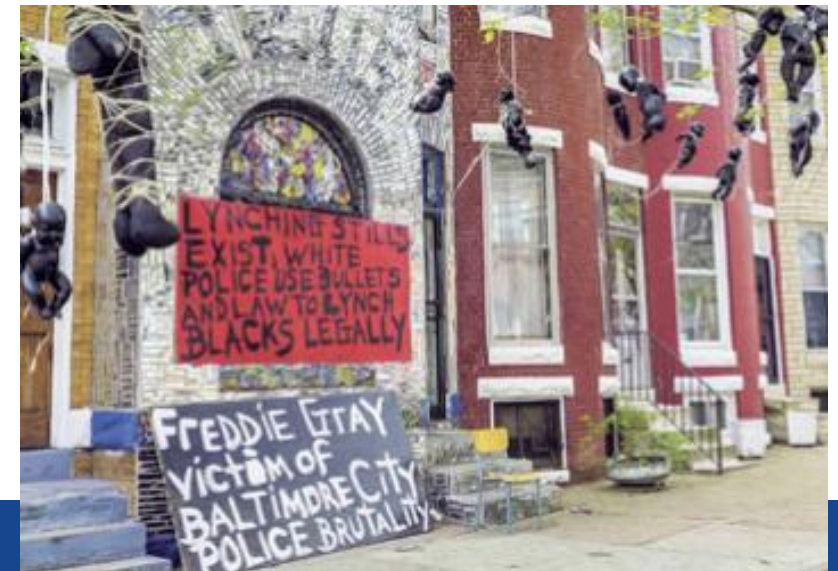 LYNCHING STILLS
EXIST, WHITE
POLICE USE BULLETS
AND LAW TO LYNCH
BLACKS LEGALLY
FREDDIE GRAY
VICTIM OF
BALTIMORE CITY
POLICE BRUTALITY.